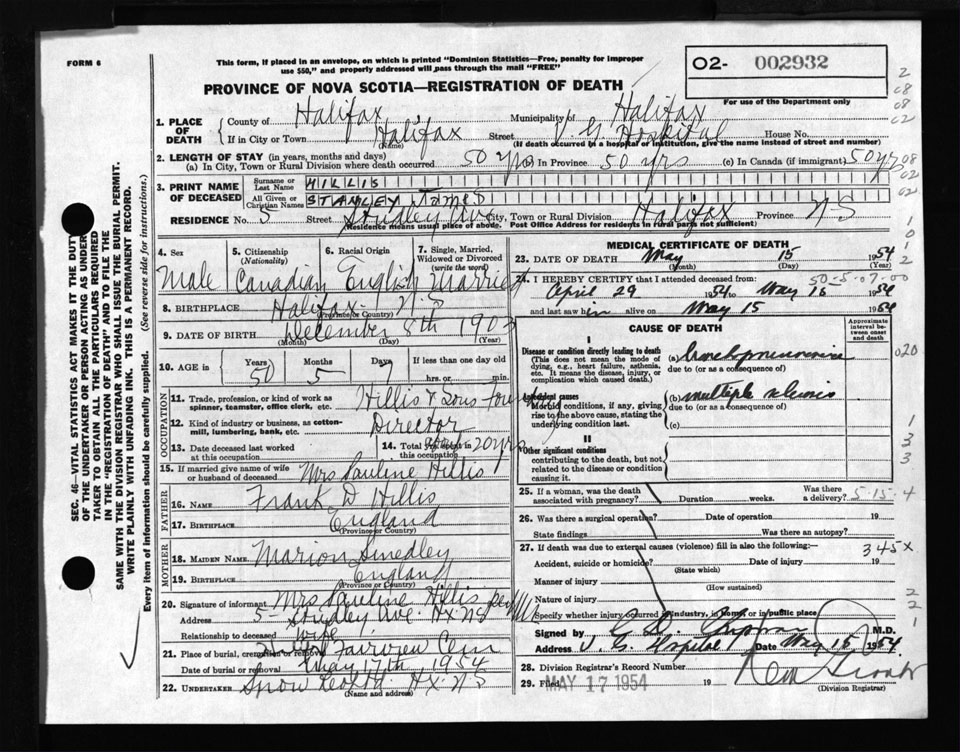 FORM 6
This form, if placed in an envelope, on which is printed "Dominion Statistics—Free, penalty for improper
use $50," and properly addressed will pass through the mail "FREE"
O2- 002932
PROVINCE OF NOVA SCOTIA—REGISTRATION OF DEATH
For use of the Department only
1. PLACE OF DEATH County of Halifax Municipality of Halifax
If in City or Town Halifax (Name) Street V. G. Hospital House No.
(If death occurred in a hospital or institution, give the name instead of street and number)
2. LENGTH OF STAY (in years, months and days)
(a) In City, Town or Rural Division where death occurred 50 yrs (b) In Province 50 yrs (c) In Canada (if immigrant) 50 yrs
3. PRINT NAME OF DECEASED Surname or Last Name HILLIS
All Given or Christian Names STANLEY James
RESIDENCE No. 5 Street Studley Ave City, Town or Rural Division Halifax Province NS
(Residence means usual place of abode. Post Office Address for residents in rural parts not sufficient)
4. Sex Male
5. Citizenship (Nationality) Canadian
6. Racial Origin English
7. Single, Married, Widowed or Divorced (write the word) Married
8. BIRTHPLACE Halifax N.S (Province or Country)
9. DATE OF BIRTH December 8th 1903
(Month) (Day) (Year)
10. AGE Years 50 Months 5 Days 7 If less than one day old hrs. or min.
OCCUPATION
11. Trade, profession, or kind of work as spinner, teamster, office clerk, etc. Hillis & Sons
12. Kind of industry or business, as cotton-mill, lumbering, bank, etc. Director
13. Date deceased last worked at this occupation
14. Total years spent in this occupation 20 yrs
15. If married give name of wife or husband of deceased Mrs Pauline Hillis
FATHER
16. NAME Frank D Hillis
17. BIRTHPLACE England (Province or Country)
MOTHER
18. MAIDEN NAME Marion Smedley
19. BIRTHPLACE England (Province or Country)
20. Signature of informant Mrs Pauline Hillis
Address 5 Studley Ave Hx NS
Relationship to deceased Wife
21. Place of burial, cremation or removal Fairview Cem
Date of burial or removal May 17th, 1954
22. UNDERTAKER Snow Hx. NS
(Name and address)
MEDICAL CERTIFICATE OF DEATH
23. DATE OF DEATH May 15 1954
(Month) (Day) (Year)
24. I HEREBY CERTIFY that I attended deceased from:
50-5-07-00
April 29 1954 to May 15 1954
and last saw him alive on May 15 1954
CAUSE OF DEATH
Approximate interval between onset and death
I
Disease or condition directly leading to death
(This does not mean the mode of dying, e.g., heart failure, asthenia, etc. It means the disease, injury, or complication which caused death.)
(a) bronchopneumonia
due to (or as a consequence of)
Antecedent causes
Morbid conditions, if any, giving rise to the above cause, stating the underlying condition last.
(b) multiple sclerosis
due to (or as a consequence of)
(c)
II
Other significant conditions
contributing to the death, but not related to the disease or condition causing it.
25. If a woman, was the death associated with pregnancy? Duration weeks. Was there a delivery? 5-15-4
26. Was there a surgical operation? Date of operation 19
State findings Was there an autopsy?
27. If death was due to external causes (violence) fill in also the following:— 345 x
Accident, suicide or homicide? (State which) Date of injury 19
Manner of injury (How sustained)
Nature of injury
Specify whether injury occurred in industry, in home or in public place
Signed by M.D.
Address V. G. Hospital Date May 15 1954
28. Division Registrar's Record Number
29. Filed MAY 17 1954 19
(Division Registrar)
SEC. 46—VITAL STATISTICS ACT MAKES IT THE DUTY
OF THE UNDERTAKER OR PERSON ACTING AS UNDER-
TAKER TO OBTAIN ALL THE PARTICULARS REQUIRED
IN THE "REGISTRATION OF DEATH" AND TO FILE THE
SAME WITH THE DIVISION REGISTRAR WHO SHALL ISSUE THE BURIAL PERMIT.
WRITE PLAINLY WITH UNFADING INK. THIS IS A PERMANENT RECORD.
Every item of information should be carefully supplied. (See reverse side for instructions.)